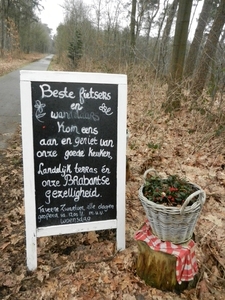 Beste fietsers
en
wandelaars
Kom eens
aan en geniet van
onze goede keuken,
Landelijk terras en
onze BRABANTSE
gezelligheid.
alle dagen
geopend va.
m.u.v
woensdag